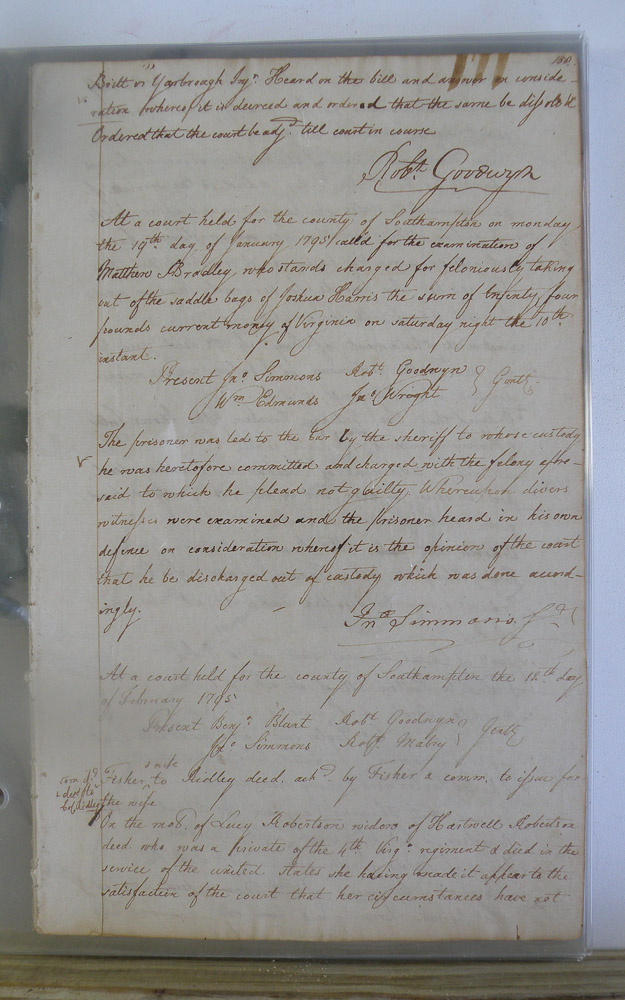 180
Britt vs Yarbrough Injn. Heard on the bill and answer on conside-
ration whereof it is decreed and ordered that the same be dissolv'd
Ordered that the court be adjd. till court in course
Robt. Goodwyn
At a court held for the county of Southampton on monday
the 19th day of January 1795 call'd for the examination of
Matthew Bradley, who stands charged for feloniously taking
out of the saddle bags of Joshua Harris the sum of twenty four
pounds current money of Virginia on saturday night the 10th
instant.
Present Jno. Simmons Robt. Goodwyn } Gentn
Wm Edmunds Jno. Wright
The prisoner was led to the bar by the sheriff to whose custody
he was heretofore committed and charged with the felony afore-
said to which he plead not guilty, Whereupon divers
witnesses were examined and the prisoner heard in his own
defence on consideration whereof it is the opinion of the court
that he be discharged out of custody which was done accord-
ingly.
Jno. Simmons
At a court held for the county of Southampton the 12th day
of February 1795
Present Benjn. Blunt Robt Goodwyn } Gentn
Jno Simmons Robt. Mabry
& wife
Fisher ^ to Ridley deed. ackd. by Fisher & comm. to issue for
the wife
On the mot. of Lucy Robertson widow of Hartwell Robertson
decd who was a private of the 4th Virga. regiment & died in the
service of the united States she having made it appear to the
satisfaction of the court that her circumstances have not